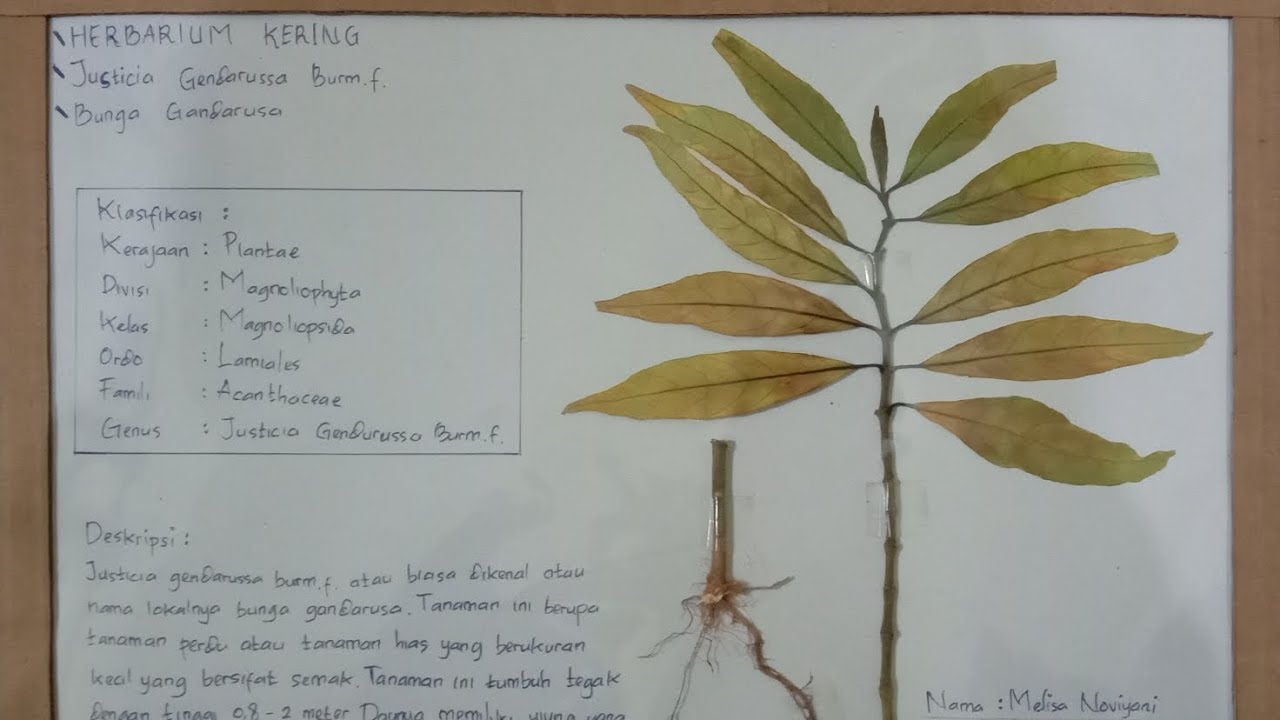 HERBARIUM KERING
Justicia Gendarussa Burm.f.
Bunga Gandarusa
Klasifikasi :
Kerajaan : Plantae
Divisi : Magnoliophyta
Kelas : Magnoliopsida
Ordo : Lamiales
Famili : Acanthaceae
Genus : Justicia Gendurussa Burm.f.
Deskripsi :
Justicia gendarussa burm.f. atau biasa dikenal atau
nama lokalnya bunga gandarusa. Tanaman ini berupa
tanaman perdu atau tanaman hias yang berukuran
kecil yang bersifat semak. Tanaman ini tumbuh tegak
dengan tinggi 0,8 - 2 meter. Daunya memiliki ujung yang
Nama : Melisa Noviyani